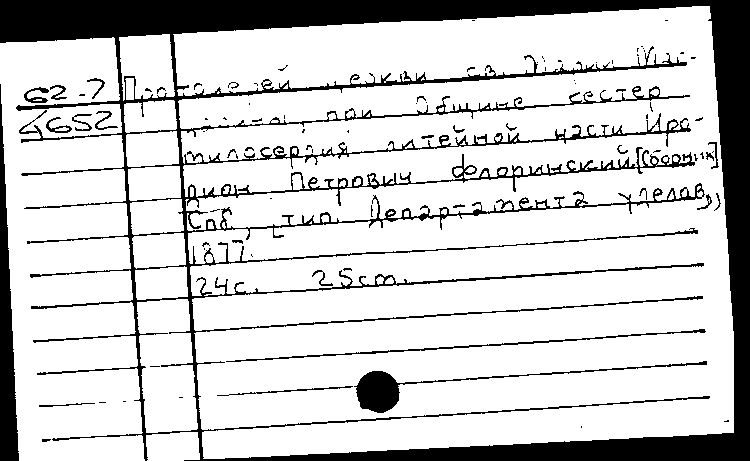 62-7 Протоиерей церкви св. Марии Маг-
4652 далины, при Общине сестер
милосердия литейной части Ира-
дион Петрович Флоринский. [Сборник]
Спб, тип. Департамента уделов,
1877.
24с. 25cm.